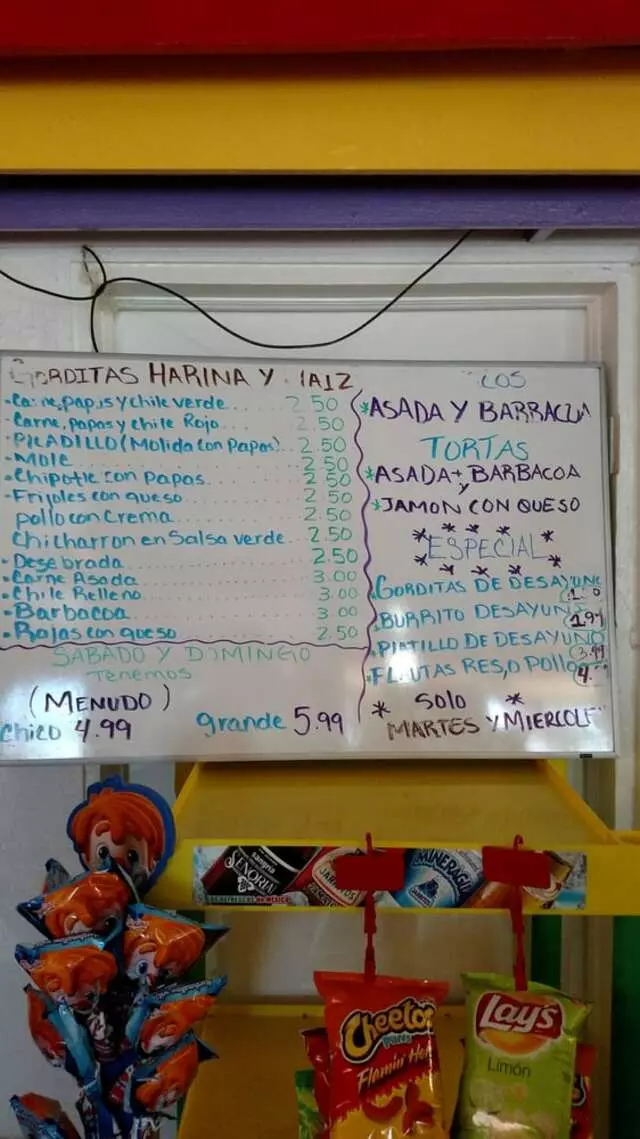 GORDITAS HARINA Y
-Carne, papas y chile verde.. 2.50
-Carne, papas y chile Rojo 2.50
-PICADILLO (Molida con Papas). 2.50
-Mole 2.50
-Chipotle con Papas 2.50
-Frijoles con queso 2.50
pollo con Crema 2.50
Chicharron en Salsa verde. 2.50
-Desebrada 2.50
-Carne Asada 3.00
-Chile Relleno 3.00
-Barbacoa 3.00
-Rajas con queso 2.50
SABADO Y DOMINGO
Tenemos
(MENUDO)
chico 4.99 grande 5.99
*ASADA Y
TORTAS
*ASADA + BARBACOA
y
*JAMON CON QUESO
* * * *
*ESPECIAL*
* * * *
GORDITAS DE DESAYUNO
BURRITO DESAYUNO 1.99
PLATILLO DE DESAYUNO 3.99
FLAUTAS RES, O POLLO
* SOLO *
MARTES Y MIERCOLE
sangria
SEÑORIAL
JARRITOS
MINERAGUA
Cheetos
Flamin' Hot
Lay's
Limón